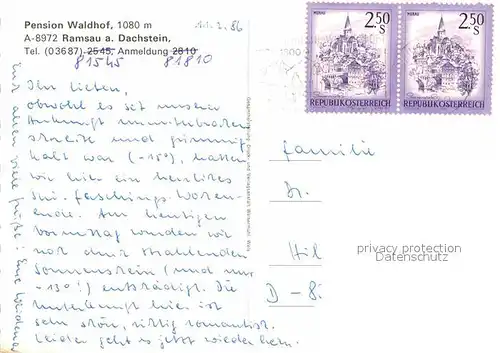 Pension Waldhof, 1080 m
A-8972 Ramsau a. Dachstein,
Tel. (03687) 2545, Anmeldung 2810
81545 81810
11.2.86
Ihr Lieben,
obwohl es seit unserer
Ankunft ununterbrochen
und grimmig
kalt war (-15°), hatten
wir hier ein herrliches
Ski-Faschings-Wochen-
ende. Am heutigen
Vormittag wurden wir
mit strahlendem
Sonnenschein (und nur
-13°!) entschädigt. Die
Unterkunft hier ist
sehr schön, richtig romantisch.
Leider geht es jetzt wieder heim.
Euch allen viele Grüße! Eure
MURAU
2.50
S
REPUBLIK ÖSTERREICH
MURAU
2.50
S
REPUBLIK ÖSTERREICH
Familie
Dr.
Hil
D - 8
privacy protection
Datenschutz